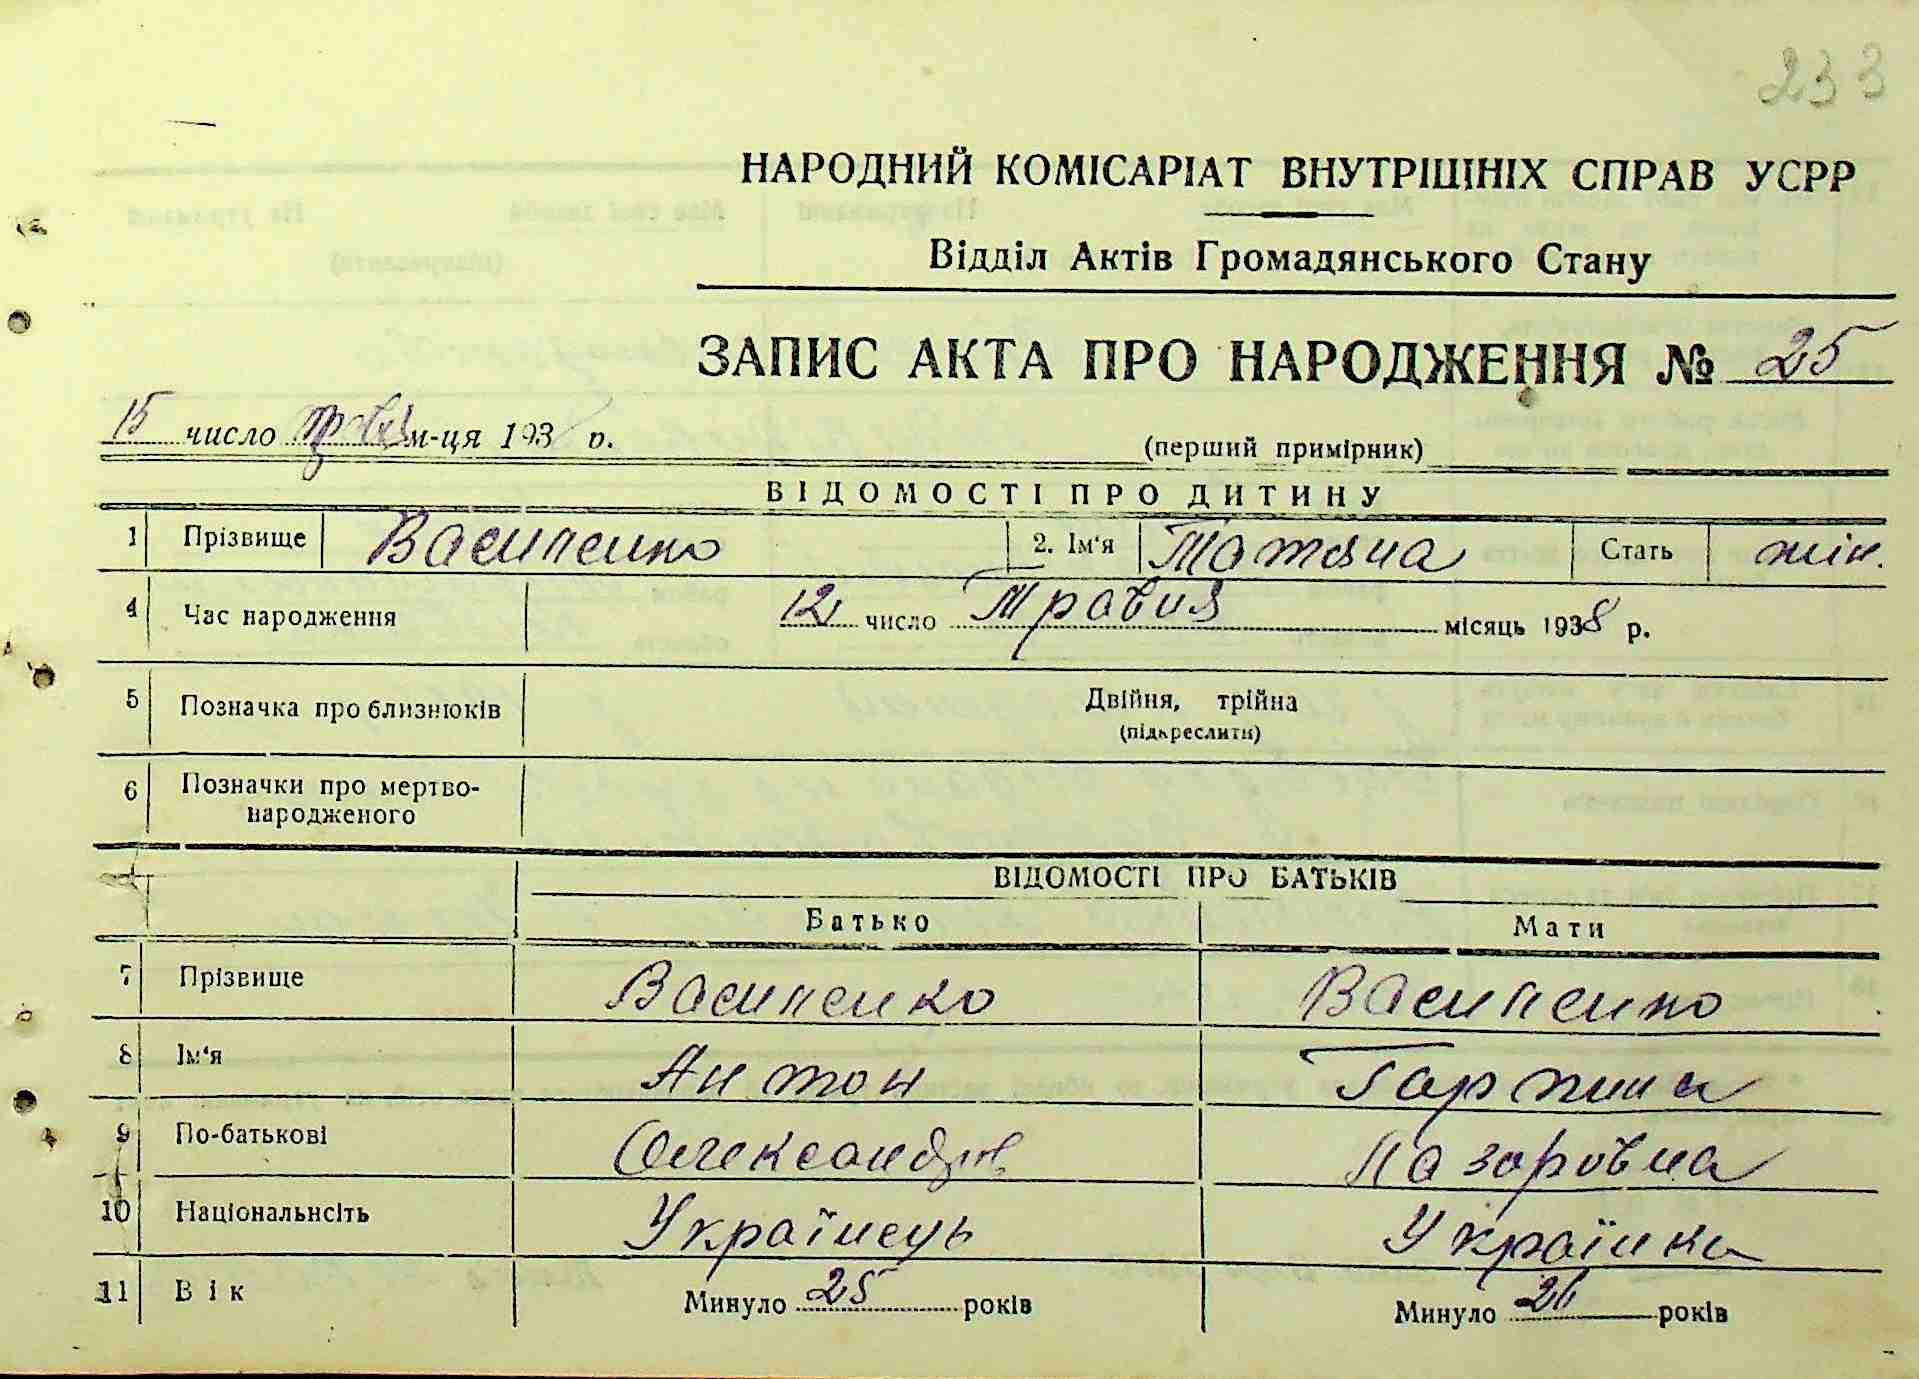 233
НАРОДНИЙ КОМІСАРІАТ ВНУТРІШНІХ СПРАВ УСРР
Відділ Актів Громадянського Стану
ЗАПИС АКТА ПРО НАРОДЖЕННЯ № 25
15 число травня м-ця 193 р.
(перший примірник)
ВІДОМОСТІ ПРО ДИТИНУ
1 Прізвище Василенко 2. Ім'я Татяна Стать жін.
4 Час народження 12 число Травня місяць 1938 р.
5 Позначка про близнюків Двійня, трійна
(підкреслити)
6 Позначки про мертво-
народженого
ВІДОМОСТІ ПРО БАТЬКІВ
Батько Мати
7 Прізвище Василенко Василенко
8 Ім'я Антон Горпина
9 По-батькові Олександров. Лазоровна
10 Національнсіть Українець Українка
11 Вік Минуло 25 років Минуло 26 років